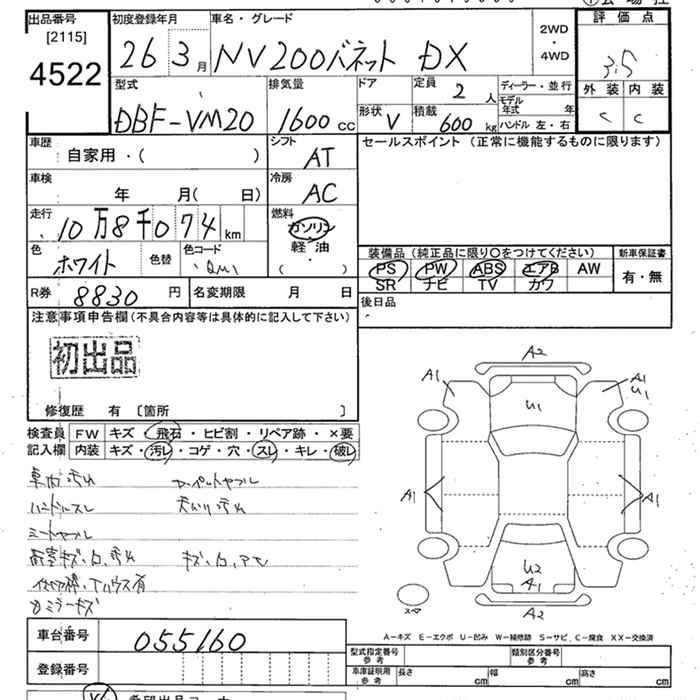 出品番号 [2115] 4522
初度登録年月 26 3月
車名・グレード NV200バネット DX
2WD・4WD
評価点 3.5
型式 DBF-VM20
排気量 1600 cc
ドア 形状 V
定員 2人
積載 600 kg
ディーラー・並行
モデル年式 年
ハンドル 左・右
外装 内装
C C
車歴 自家用・( )
シフト AT
セールスポイント (正常に機能するものに限ります)
車検 年 月( 日)
冷房 AC
走行 10万8千074 km
燃料 ガソリン
軽・油
( )
色 ホワイト 色替 色コード QM1
装備品 (純正品に限り○をつけてください) 新車保証書
PS PW ABS エアB AW 有・無
SR ナビ TV カワ
R券 8830円 名変期限 月 日
後日品
注意事項申告欄 (不具合内容等は具体的に記入して下さい)
初出品
修復歴 有 〔箇所 〕
検査員 FW キズ・飛石・ヒビ割・リペア跡・×要
記入欄 内装 キズ・汚レ・コゲ・穴・スレ・キレ・破レ
車内汚れ
ハンドルスレ 天バリ汚れ
A2
A1 U1 A1 U1
A1 A1
U2
A1
A2
A−キズ E−エクボ U−凹み W−補修跡 S−サビ C−腐食 XX−交換済
車台番号 055160
登録番号
型式指定番号 参考 類別区分番号 参考
車庫証明用 参考 長さ cm 幅 cm 高さ cm